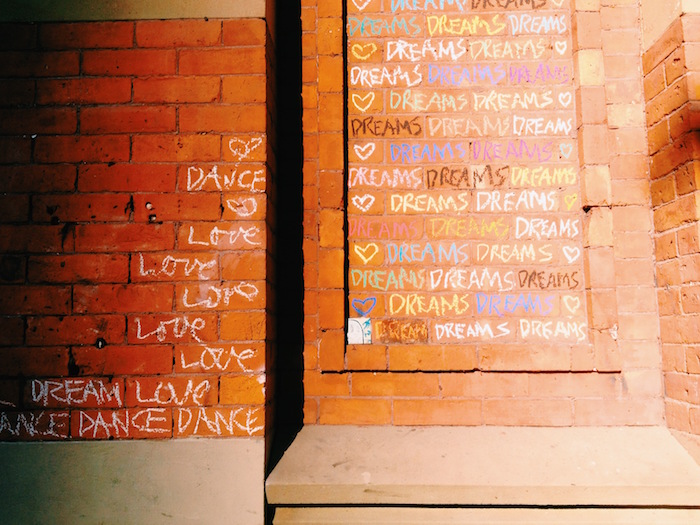 DANCE
LOVE
LOVE
LOVE
LOVE
LOVE
DREAM LOVE
DANCE DANCE
DREAMS DREAMS
DREAMS DREAMS DREAMS
DREAMS DREAMS
DREAMS DREAMS DREAMS
DREAMS DREAMS
DREAMS DREAMS DREAMS
DREAMS DREAMS
DREAMS DREAMS DREAMS
DREAMS DREAMS
DREAMS DREAMS DREAMS
DREAMS DREAMS
DREAMS DREAMS DREAMS
DREAMS DREAMS
DREAMS DREAMS DREAMS